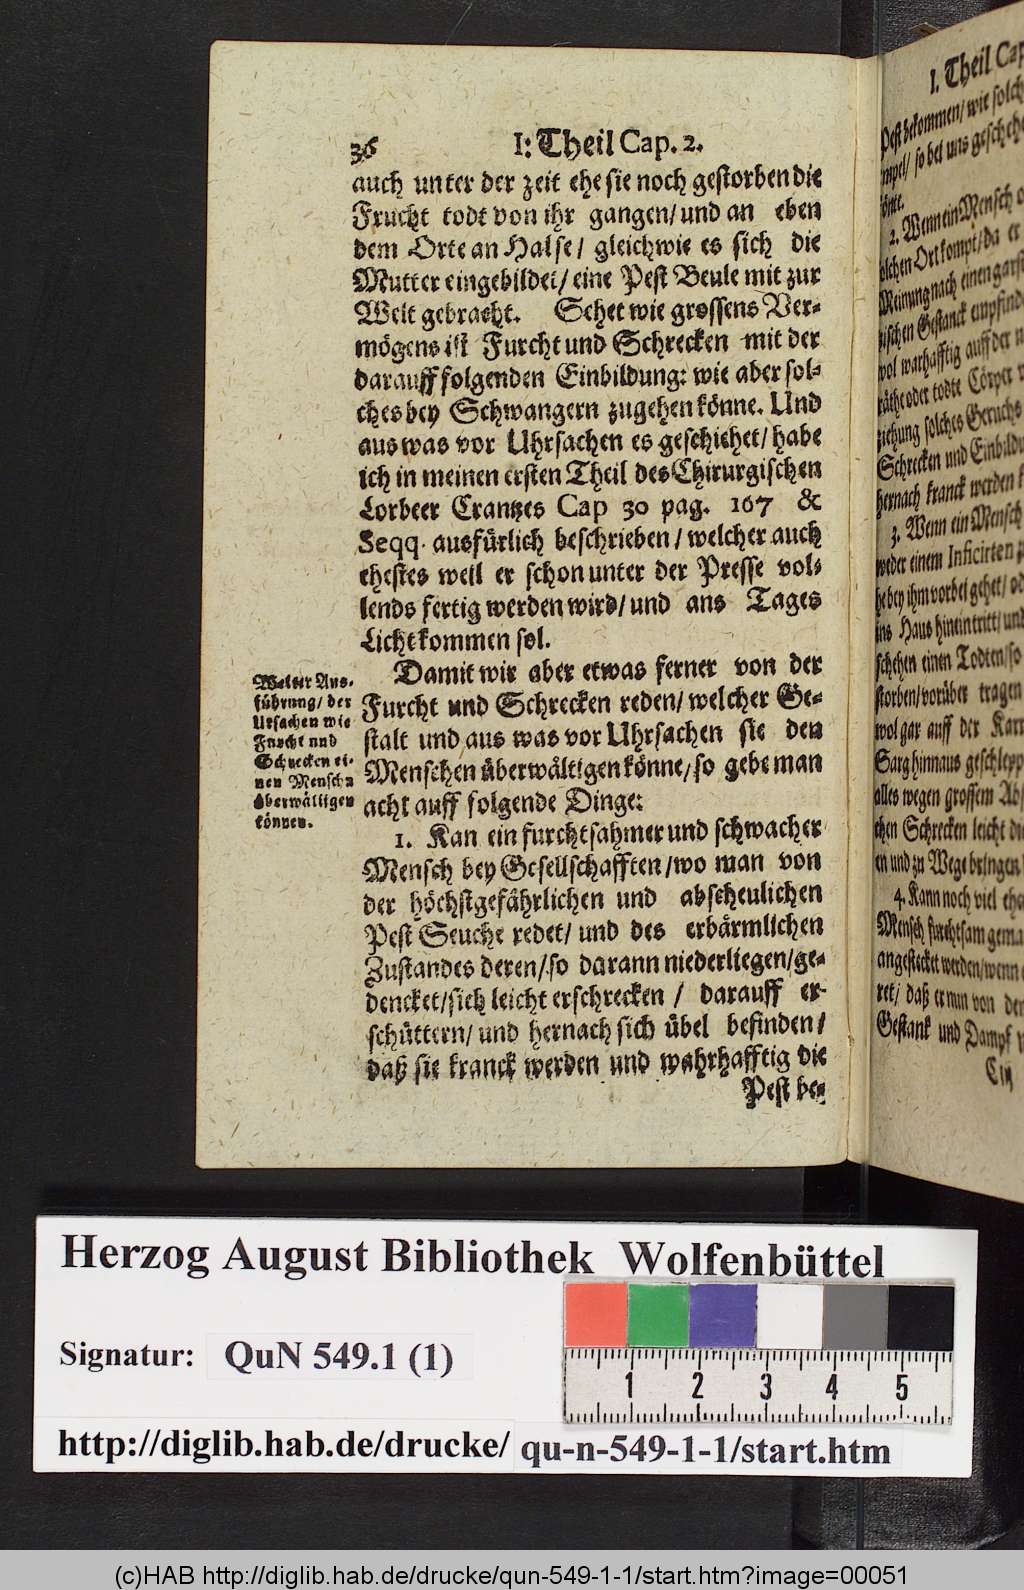 36 I: Theil Cap. 2.
auch unter der zeit ehe sie noch gestorben die
Frucht todt von ihr gangen/ und an eben
dem Orte an Halse/ gleichwie es sich die
Mutter eingebildet/ eine Pest Beule mit zur
Welt gebracht. Sehet wie grossens Ver-
mögens ist Furcht und Schrecken mit der
darauff folgenden Einbildung: wie aber sol-
ches bey Schwangern zugehen könne. Und
aus was vor Uhrsachen es geschiehet/ habe
ich in meinen ersten Theil des Chirurgischen
Lorbeer Crantzes Cap 30 pag. 167 &
Seqq. ausfürlich beschrieben/ welcher auch
ehestes weil er schon unter der Presse vol-
lends fertig werden wird/ und ans Tages
Licht kommen sol.
Damit wir aber etwas ferner von der
Furcht und Schrecken reden/ welcher Ge-
stalt und aus was vor Uhrsachen sie den
Menschen überwältigen könne/ so gebe man
acht auff folgende Dinge:
Weiter Aus-
führung/ der
Ursachen wie
Furcht und
Schrecken ei-
nen Menschn
überwältigen
können.
1. Kan ein furchtsahmer und schwacher
Mensch bey Gesellschafften/ wo man von
der höchstgefährlichen und abscheulichen
Pest Seuche redet/ und des erbärmlichen
Zustandes deren/ so darann niederliegen/ ge-
dencket/ sich leicht erschrecken / darauff er-
schüttern/ und hernach sich übel befinden/
daß sie kranck werden und wahrhafftig die
Pest be-
I. Theil Cap
Pest bekommen/ wie solch
so bei uns geschehe
2. Wenn ein Mensch
solchen Ort kompt/ da er
Meinung nach einen garst
stischen Gestanck empfind
wol warhafftig auff der
räthe oder todte Cörper
ziehung solches Geruchs
Schrecken und Einbildu
hernach kranck werden k
3. Wenn ein Mensch
weder einem Inficirten
he bey ihm vorbei gehet/
ins Haus hinein tritt/ und
schehen einen Todten/ so
storben/ vorüber tragen
wol gar auff der Karr
Sarg hinnaus geschlepp
alles wegen grossem Ab
chen Schrecken leicht di
en und zu Wege bringen
4. Kann noch viel ehe
Mensch furchtsam gema
angestecket werden/ wenn
ret/ daß er nun von der
Gestank und Dampf
Herzog August Bibliothek Wolfenbüttel
Signatur: QuN 549.1 (1)
1 2 3 4 5
http://diglib.hab.de/drucke/ qu-n-549-1-1/start.htm
(c)HAB http://diglib.hab.de/drucke/qun-549-1-1/start.htm?image=00051